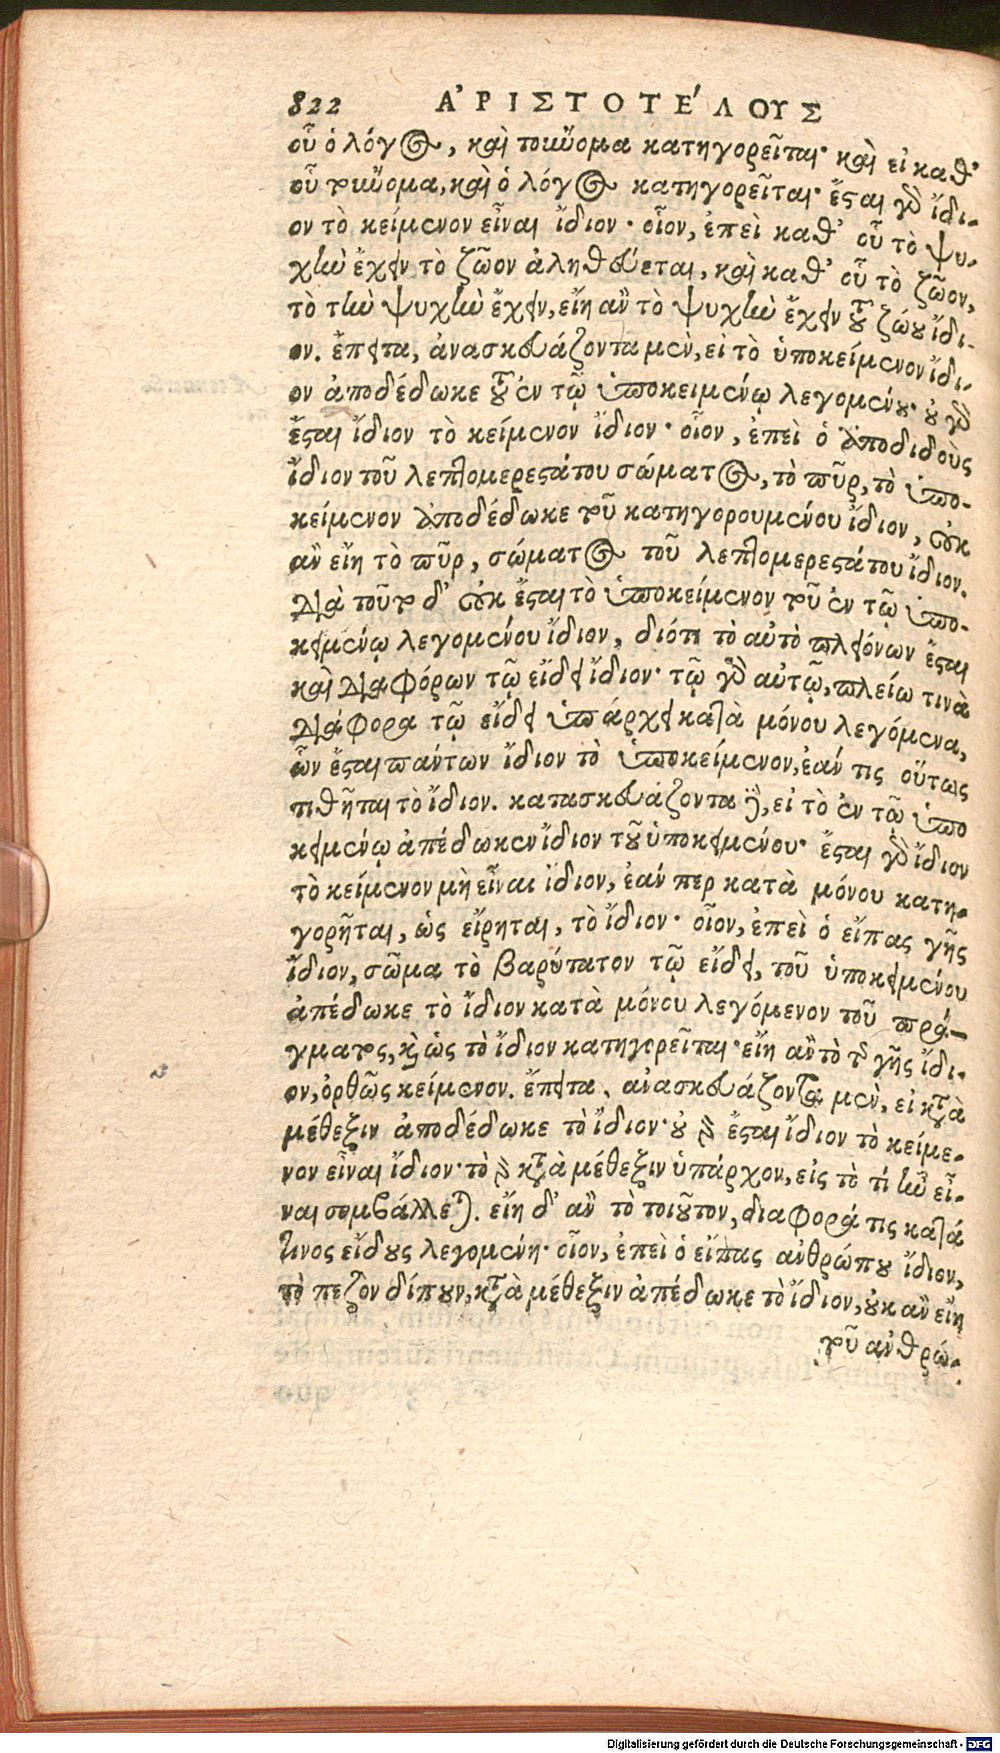 822 Α᾿ΡΙΣΤΟΤΕ´ΛΟΥΣ
οὗ ὁ λόγος, καὶ τοὔνομα κατηγορεῖται· καὶ εἰ καθ᾽
οὗ τοὔνομα, καὶ ὁ λόγος κατηγορεῖται· ἔσται γὰρ ἴδι-
ον τὸ κείμενον εἶναι ἴδιον· οἷον, ἐπεὶ καθ᾽ οὗ τὸ ψυ-
χὴν ἔχειν τὸ ζῶον ἀληθεύεται, καὶ καθ᾽ οὗ τὸ ζῶον,
τὸ τὴν ψυχὴν ἔχειν, εἴη ἂν τὸ ψυχὴν ἔχειν τοῦ ζώου ἴδι-
ον. ἔπειτα, ἀνασκευάζοντα μὲν, εἰ τὸ ὑποκείμενον ἴδι-
ον ἀποδέδωκε τοῦ ἐν τῷ ὑποκειμένῳ λεγομένου· οὐ γὰρ
ἔσται ἴδιον τὸ κείμενον ἴδιον· οἷον, ἐπεὶ ὁ ἀποδιδοὺς
ἴδιον τοῦ λεπτομερεστάτου σώματος, τὸ πῦρ, τὸ ὑπο-
κείμενον ἀποδέδωκε τοῦ κατηγορουμένου ἴδιον, οὐκ
ἂν εἴη τὸ πῦρ, σώματος τοῦ λεπτομερεστάτου ἴδιον.
διὰ τοῦτο δ᾽ οὐκ ἔσται τὸ ὑποκείμενον τοῦ ἐν τῷ ὑπο-
κειμένῳ λεγομένου ἴδιον, διότι τὸ αὐτὸ πλειόνων ἔσται
καὶ διαφόρων τῷ εἴδει ἴδιον· τῷ γὰρ αὐτῷ, πλείω τινὰ
διάφορα τῷ εἴδει ὑπάρχει κατὰ μόνου λεγόμενα,
ὧν ἔσται πάντων ἴδιον τὸ ὑποκείμενον, ἐάν τις οὕτως
τιθῆται τὸ ἴδιον. κατασκευάζοντα δὲ, εἰ τὸ ἐν τῷ ὑπο
κειμένῳ ἀπέδωκεν ἴδιον τοῦ ὑποκειμένου· ἔσται γὰρ ἴδιον
τὸ κείμενον μὴ εἶναι ἴδιον, ἐάν περ κατὰ μόνου κατη-
γορῆται, ὡς εἴρηται, τὸ ἴδιον· οἷον, ἐπεὶ ὁ εἴπας γῆς
ἴδιον, σῶμα τὸ βαρύτατον τῷ εἴδει, τοῦ ὑποκειμένου
ἀπέδωκε τὸ ἴδιον κατὰ μόνου λεγόμενον τοῦ πρά-
γματος, καὶ ὡς τὸ ἴδιον κατηγορεῖται· εἴη ἂν τὸ τῆς γῆς ἴδι-
ον, ὀρθῶς κείμενον. ἔπειτα, ἀνασκευάζοντα μὲν, εἰ κατὰ
μέθεξιν ἀποδέδωκε τὸ ἴδιον· οὐ γὰρ ἔσται ἴδιον τὸ κείμε-
νον εἶναι ἴδιον· τὸ γὰρ κατὰ μέθεξιν ὑπάρχον, εἰς τὸ τί ἦν εἶ-
ναι συμβάλλεται. εἴη δ᾽ ἂν τὸ τοιοῦτον, διαφορά τις κατά
τινος εἴδους λεγομένη· οἷον, ἐπεὶ ὁ εἴπας ἀνθρώπου ἴδιον,
τὸ πεζὸν δίπουν, κατὰ μέθεξιν ἀπέδωκε τὸ ἴδιον, οὐκ ἂν εἴη
τοῦ ἀνθρώ-
Digitalisierung gefördert durch die Deutsche Forschungsgemeinschaft - DFG